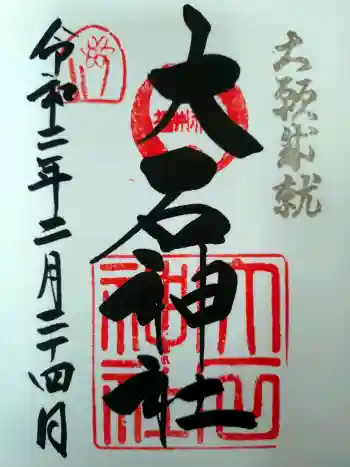 大願成就
大石神社
令和二年二月二十四日